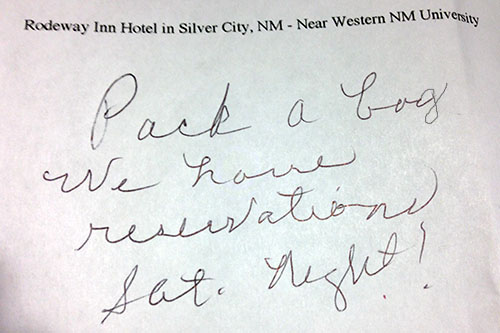 Rodeway Inn Hotel in Silver City, NM - Near Western NM University
Pack a bag
We have
reservations
Sat. Night!